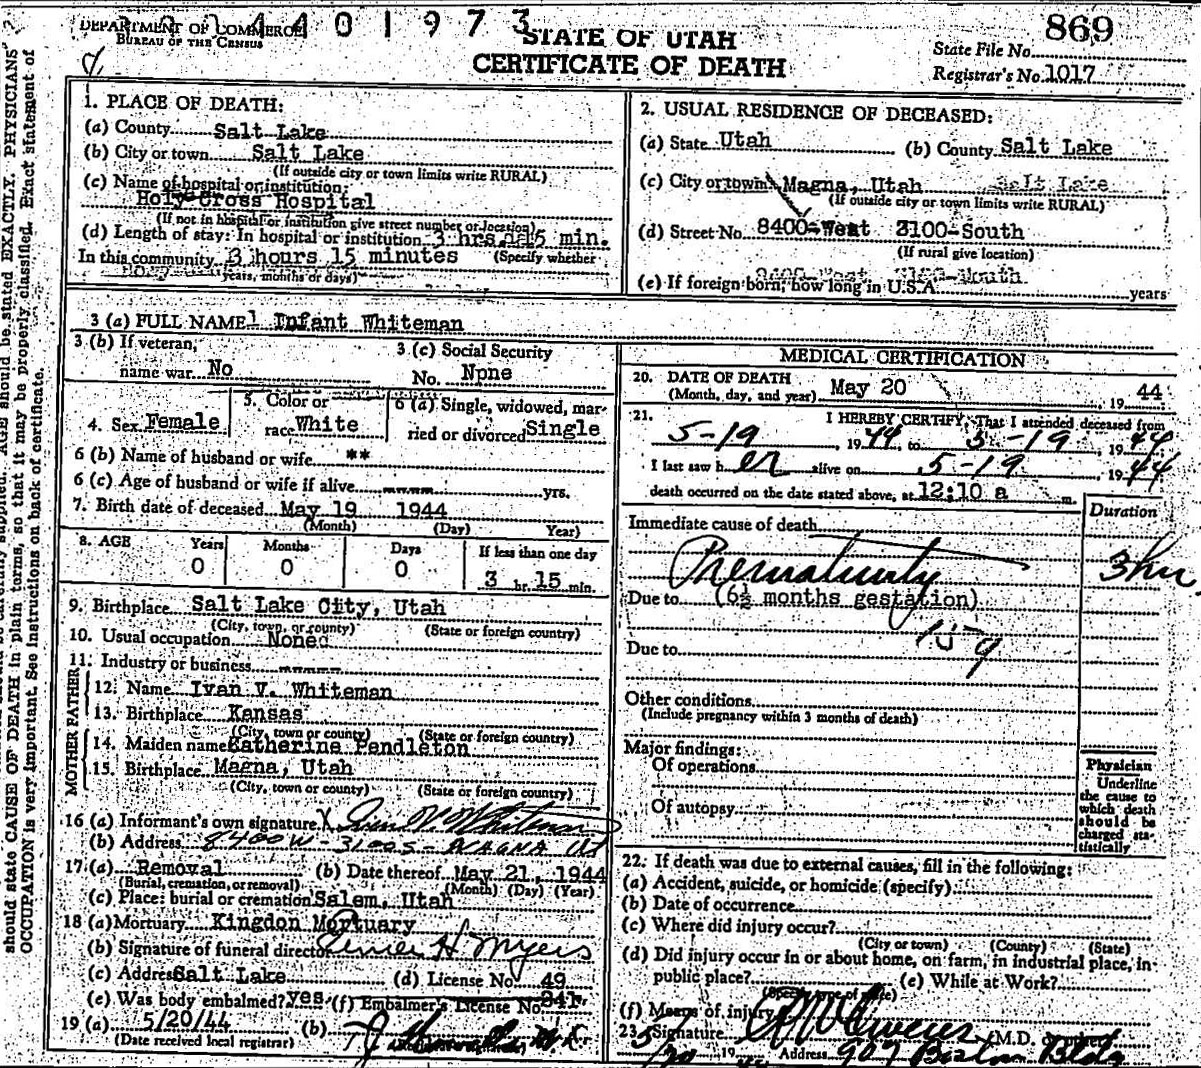 DEPARTMENT OF COMMERCE
BUREAU OF THE CENSUS
4 4 0 1 9 7 3
STATE OF UTAH
CERTIFICATE OF DEATH
869
State File No.
Registrar's No. 1017
1. PLACE OF DEATH:
(a) County Salt Lake
(b) City or town Salt Lake
(If outside city or town limits write RURAL)
(c) Name of hospital or institution:
Holy Cross Hospital
(If not in hospital or institution give street number or location)
(d) Length of stay: In hospital or institution 3 hrs 15 min.
In this community 3 hours 15 minutes (Specify whether
years, months or days)
2. USUAL RESIDENCE OF DECEASED:
(a) State Utah (b) County Salt Lake
(c) City or town Magna, Utah Salt Lake
(If outside city or town limits write RURAL)
(d) Street No. 8400 West 3100 South
(If rural give location)
(e) If foreign born, how long in U.S.A. years
3 (a) FULL NAME Infant Whiteman
3 (b) If veteran, name war No
3 (c) Social Security No. Npne
4. Sex Female
5. Color or race White
6 (a) Single, widowed, married or divorced Single
6 (b) Name of husband or wife **
6 (c) Age of husband or wife if alive yrs.
7. Birth date of deceased May 19 1944
(Month) (Day) Year)
8. AGE Years Months Days If less than one day
0 0 0 3 hr. 15 min.
9. Birthplace Salt Lake City, Utah
(City, town, or county) (State or foreign country)
10. Usual occupation None
11. Industry or business
FATHER
12. Name Ivan V. Whiteman
13. Birthplace Kansas
(City, town or county) (State or foreign country)
MOTHER
14. Maiden name Katherine Pendleton
15. Birthplace Magna, Utah
(City, town or county) (State or foreign country)
16 (a) Informant's own signature
(b) Address 8400 W - 3100 S - MAGNA Ut
17 (a) Removal (b) Date thereof May 21, 1944
(Burial, cremation, or removal) (Month) (Day) (Year)
(c) Place: burial or cremation Salem, Utah
18 (a) Mortuary Kingdon Mortuary
(b) Signature of funeral director H Myers
(c) Address Salt Lake (d) License No. 49
(e) Was body embalmed? yes (f) Embalmer's License No. 341
19 (a) 5/20/44 (b)
(Date received local registrar)
MEDICAL CERTIFICATION
20. DATE OF DEATH May 20 19 44
(Month, day, and year)
21. I HEREBY CERTIFY, That I attended deceased from
5-19, 19 44, to 5-19, 19 44
I last saw h er alive on 5-19, 19 44
death occurred on the date stated above, at 12:10 a m.
Duration
Immediate cause of death
Prematurity 3 hrs
Due to (6½ months gestation)
159
Due to
Other conditions
(Include pregnancy within 3 months of death)
Major findings:
Of operations
Of autopsy
Physician
Underline
the cause to
which death
should be
charged sta-
tistically
22. If death was due to external causes, fill in the following:
(a) Accident, suicide, or homicide (specify)
(b) Date of occurrence
(c) Where did injury occur?
(City or town) (County) (State)
(d) Did injury occur in or about home, on farm, in industrial place, in-
public place? (e) While at Work?
(Specify type of place)
(f) Means of injury
23. Signature (M.D.
5/20 19 44 Address 907 Boston Bldg
should state CAUSE OF DEATH in plain terms, so that it may be properly classified. Exact statement of
OCCUPATION is very important. See instructions on back of certificate.
AGE should be stated EXACTLY. PHYSICIANS